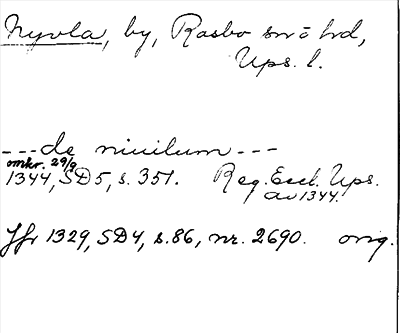 Nyvla, by, Rasbo sn o hd,
Ups. l.
---de niuilum---
omkr. 29/9
1344, SD5, s. 351. Reg. Eccl. Ups.
av 1344.
Jfr 1329, SD4, s. 86, nr. 2690. orig.